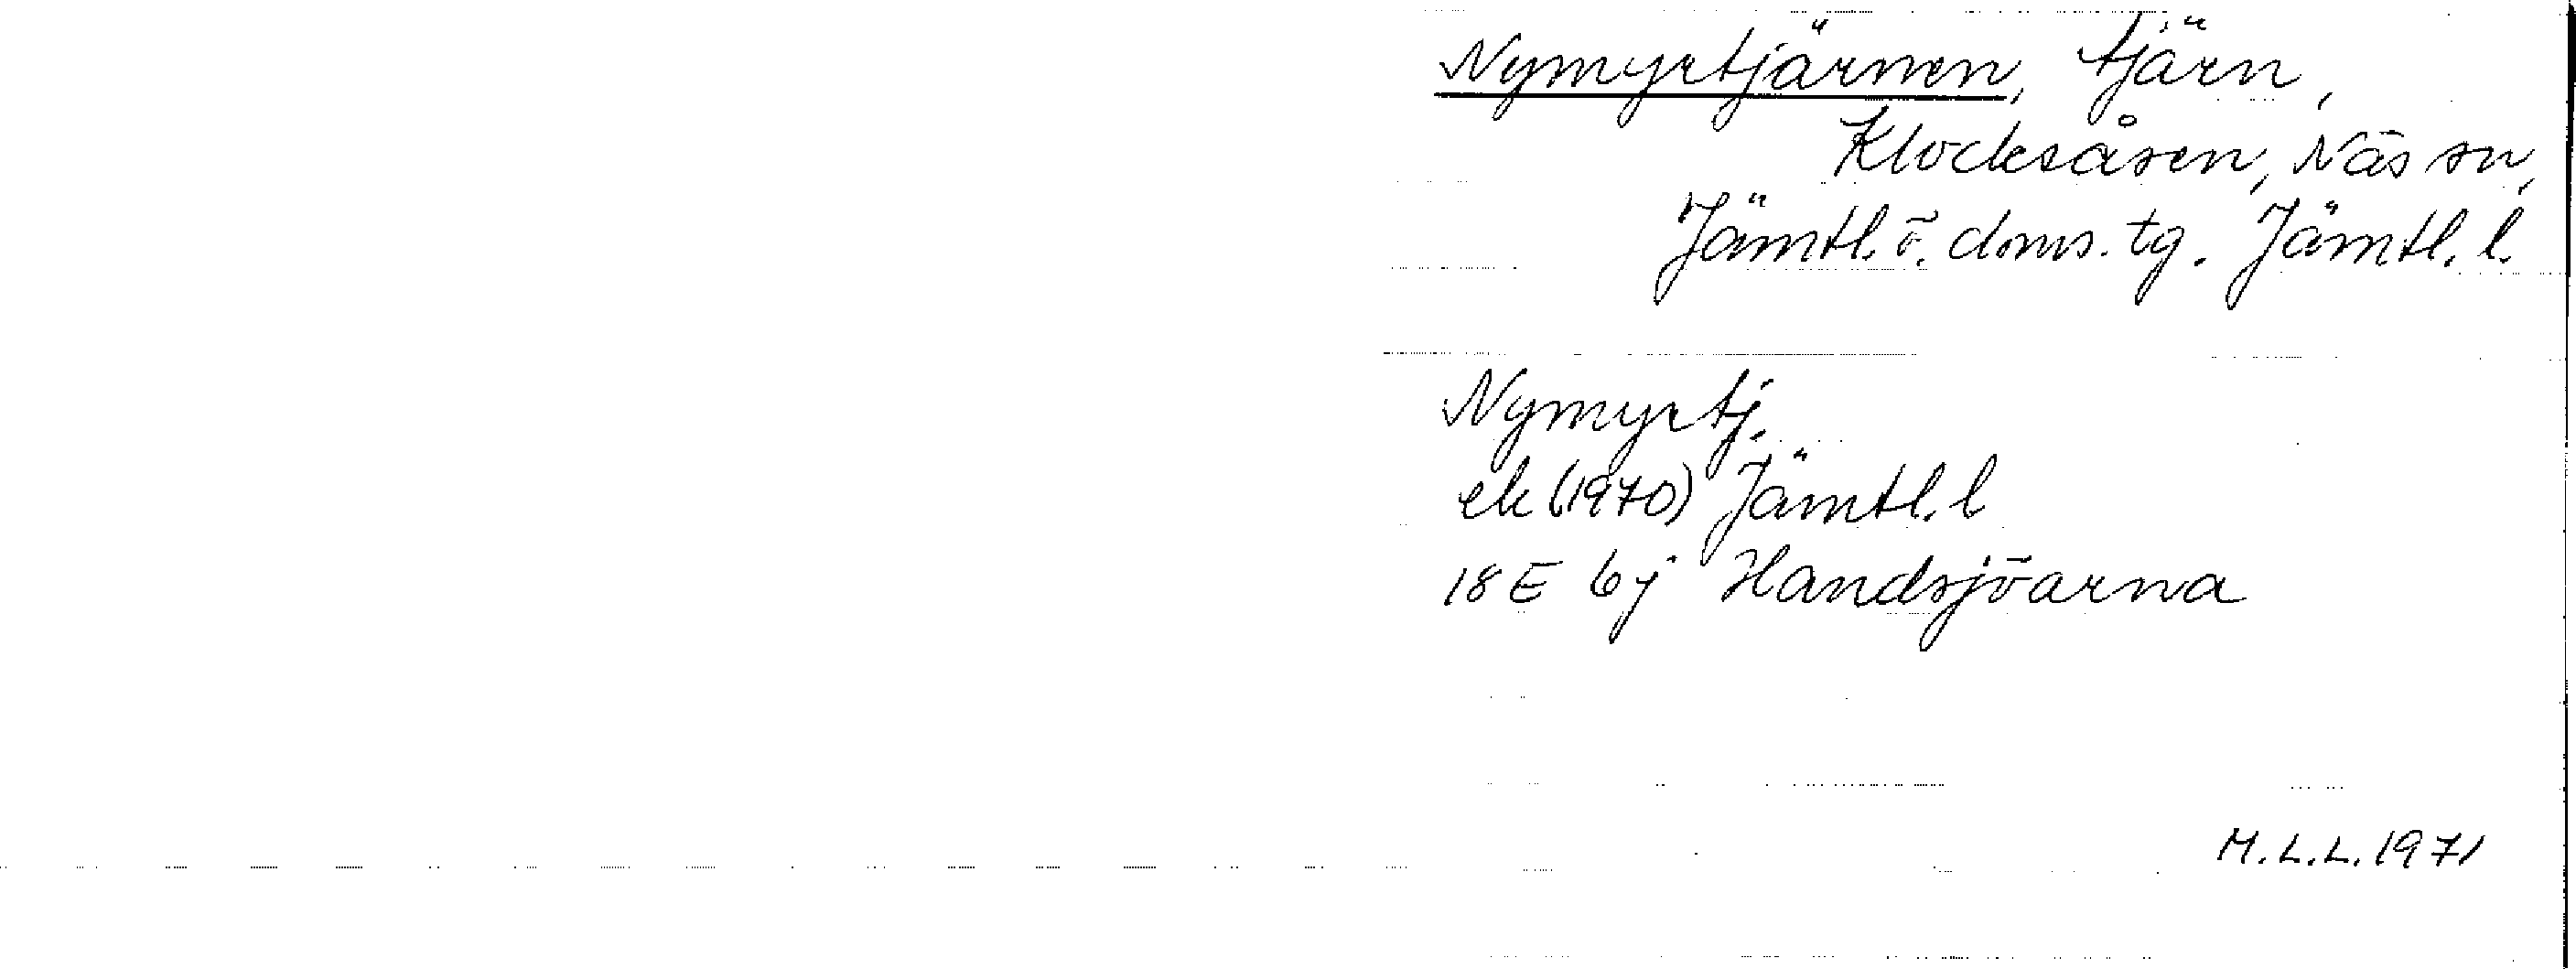 Nymyrtjärnen, tjärn,
Klocksåsen, Näs sn,
Jämtl. ö. doms. tg. Jämtl. l.
Nymyrtj.
ek (1970) Jämtl. l
18 E 6 j Handsjöarna
M.L.L. 1971